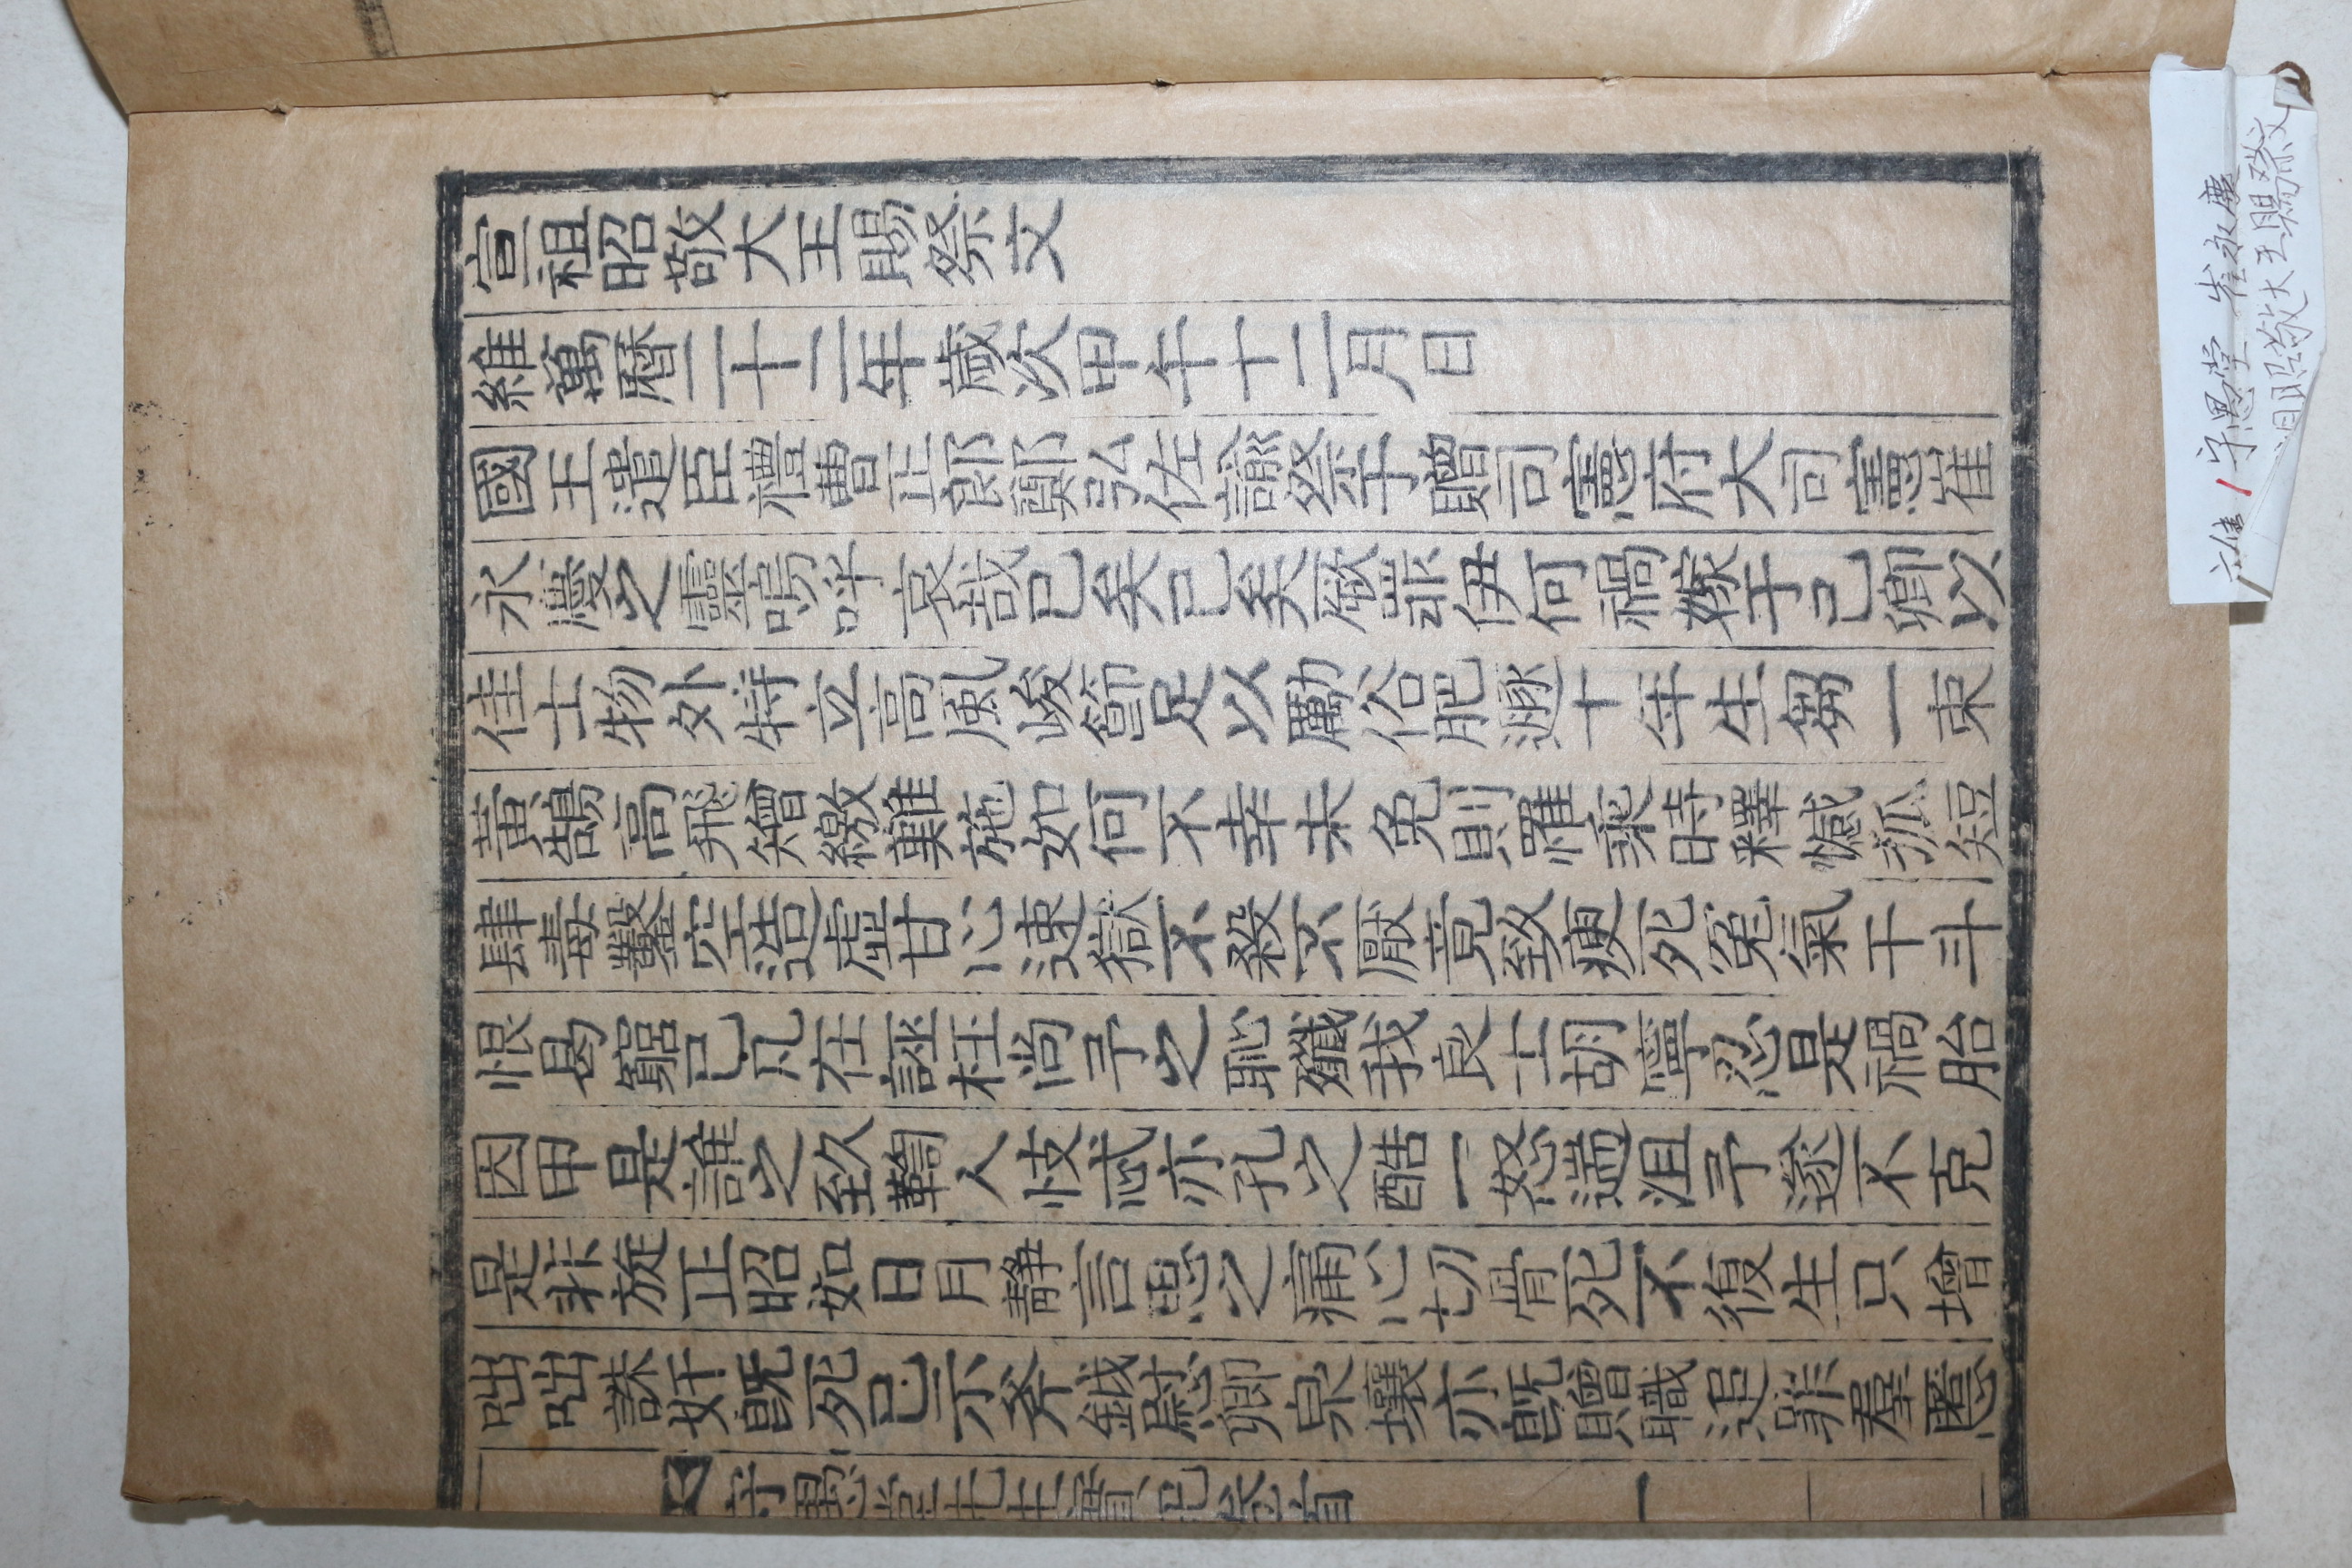 宣祖昭敬大王賜祭文
維萬曆二十二年歲次甲午十二月日
國王遣臣禮曹正郎鄭弘佐諭祭于贈司憲府大司憲崔
永慶之靈嗚呼哀哉已矣已矣厥罪伊何禍嫁于己卿以
佳士物外特立高風峻節足以勵俗肥遯十年生芻一束
黃鵠高飛矰繳難施如何不幸未免則羅乘時釋憾狐短
肆毒鑿空造虛甘心速獄不殺不厭竟致瘐死冤氣干斗
恨曷窮已凡在誣枉尚予之恥殲我良士胡寧忍是禍胎
因甲是誰之致鞫人忮忒亦孔之酷一怒遄沮予遂不克
是非旋正昭如日月靜言思之痛心切骨死不復生只增
咄咄誅奸旣死已示斧鉞慰卿泉壤亦旣贈職追罪羣慝
守愚堂先生實紀卷首 一
守愚堂 崔永慶
昭敬大王賜祭文